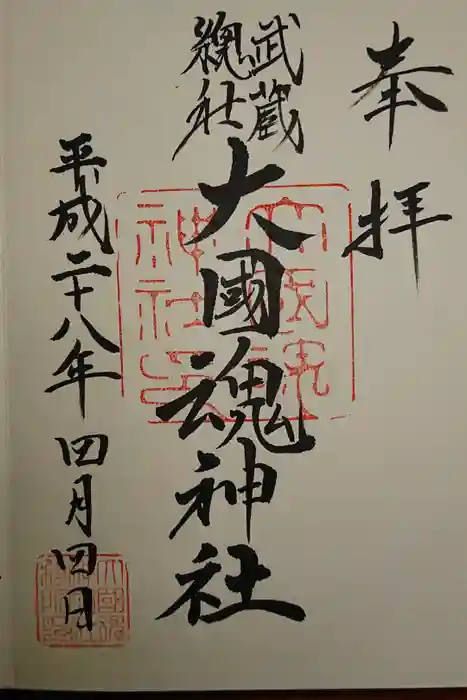 奉拝
武蔵
総社
大國魂神社
平成二十八年四月四日